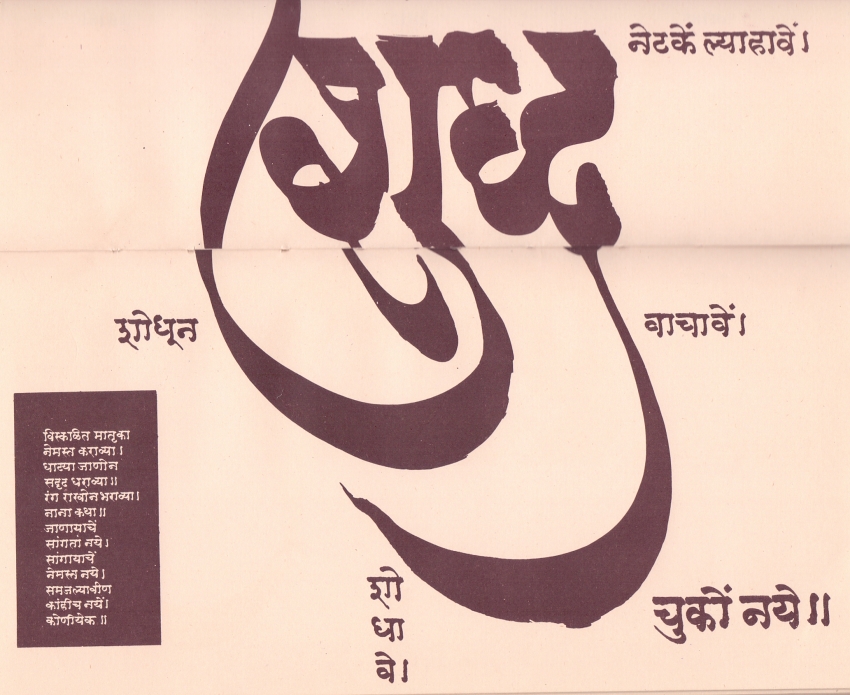 शुद्ध
नेटकें ल्याहावें।
शोधून
वाचावें।
शो
धा
वे।
चुकों नये॥
विस्कळित मातृका
नेमस्त कराव्या।
धाट्या जाणोन
सदृढ धराव्या॥
रंग राखोन भराव्या।
नाना कथा॥
जाणायाचें
सांगतां नये।
सांगायाचें
नेमस्त नये।
समजल्यावीण
कांहींच नये।
कोणीयेक॥